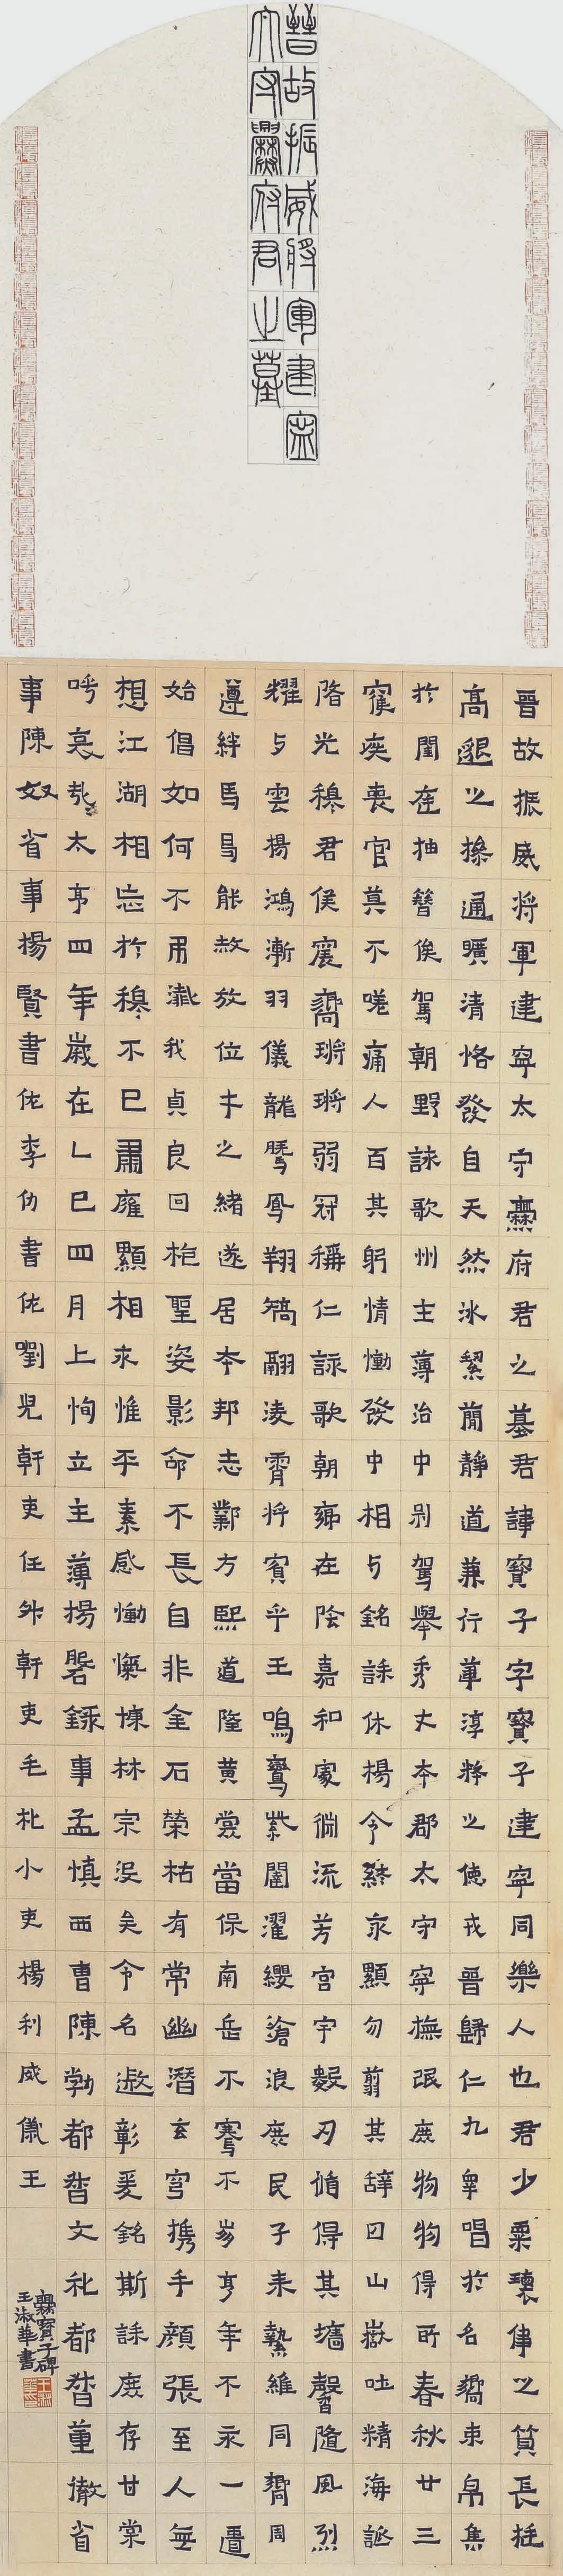 晉故振威將軍建寧
太守爨府君之墓
晉故振威将軍建寧太守爨府君之墓君諱寶子字寶子建寧同樂人也君少稟瓌偉之質長挺
高邈之操通曠清恪發自天然冰絜蕳靜道兼行葦淳粹之德戎晉歸仁九皋唱於名嚮束帛集
於閨庭抽簪俟駕朝野詠歌州主薄治中别駕舉秀才本郡太守寧撫氓庶物物得所春秋廿三
寢疾喪官莫不嗟痛人百其躬情慟發中相与銘誄休揚令終永顯勿翦其辭曰山嶽吐精海誕
陷光穆君侯震嚮鏘鏘弱冠稱仁詠歌朝鄉在陰嘉和處淵流芳宫宇數刃循得其墻馨隨風烈
耀与雲揚鴻漸羽儀龍騰鳳翔矯翮凌霄将賓乎王鳴鸞紫闥濯纓滄浪庶民子来縶維同嚮周
遵絆馬曷能赦放位才之緒遂居本邦志鄴方熙道隆黄裳當保南岳不騫不崩享年不永一匱
始倡如何不弔殲我貞良回枹聖姿影命不長自非金石榮枯有常幽潜玄穹携手顏張至人無
想江湖相忘於穆不已肅雍顯相永惟平素感慟愾慷林宗没矣令名遐彰爰銘斯誄庶存甘棠
呼哀哉太亨四年歲在乙巳四月上恂立主薄楊磐録事孟慎西曹陳勃都督文礼都督董徹省
事陳奴省事楊賢書佐李仂書佐劉兒軒吏任外軒吏毛礼小吏楊利威儀王
爨寶子碑
王淑華書